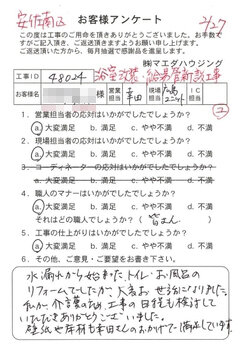 安佐南区
お客様アンケート
2/27
この度は工事のご用命を頂きありがとうございました。お手数で
すがご記入頂き、ご返送頂きますようお願い申し上げます。
ご返送頂いた方から、毎月抽選で感謝品を進呈します。
㈱マエダハウジング
工事ID 48024 浴室改装・給湯管新設工事
お客様名 様 営業担当 幸田 現場担当
1. 営業担当者の応対はいかがでしたでしょうか？
a.大変満足 b.満足 c.やや不満 d.不満
2. 現場担当者の応対はいかがでしたでしょうか？
a.大変満足 b.満足 c.やや不満 d.不満
3. コーディネーターの応対はいかがでしたでしょうか？
a.大変満足 b.満足 c.やや不満 d.不満
4. 職人のマナーはいかがでしたでしょうか？
a.大変満足 b.満足 c.やや不満 d.不満
それはどの職人でしょうか？ ( 皆さん )
5. 工事の仕上がりはいかがでしたでしょうか？
a.大変満足 b.満足 c.やや不満 d.不満
6. その他、ご意見・ご要望をお書き下さい。
水漏れから始まったトイレ・お風呂の
リフォームでしたが 大変お世話になりました。
私が介護の為 工事の日程も検討して
いただきありがとうございました。
壁紙や床材も幸田さんのおかげで満足しています。